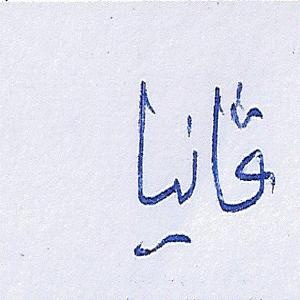 ڤانيا